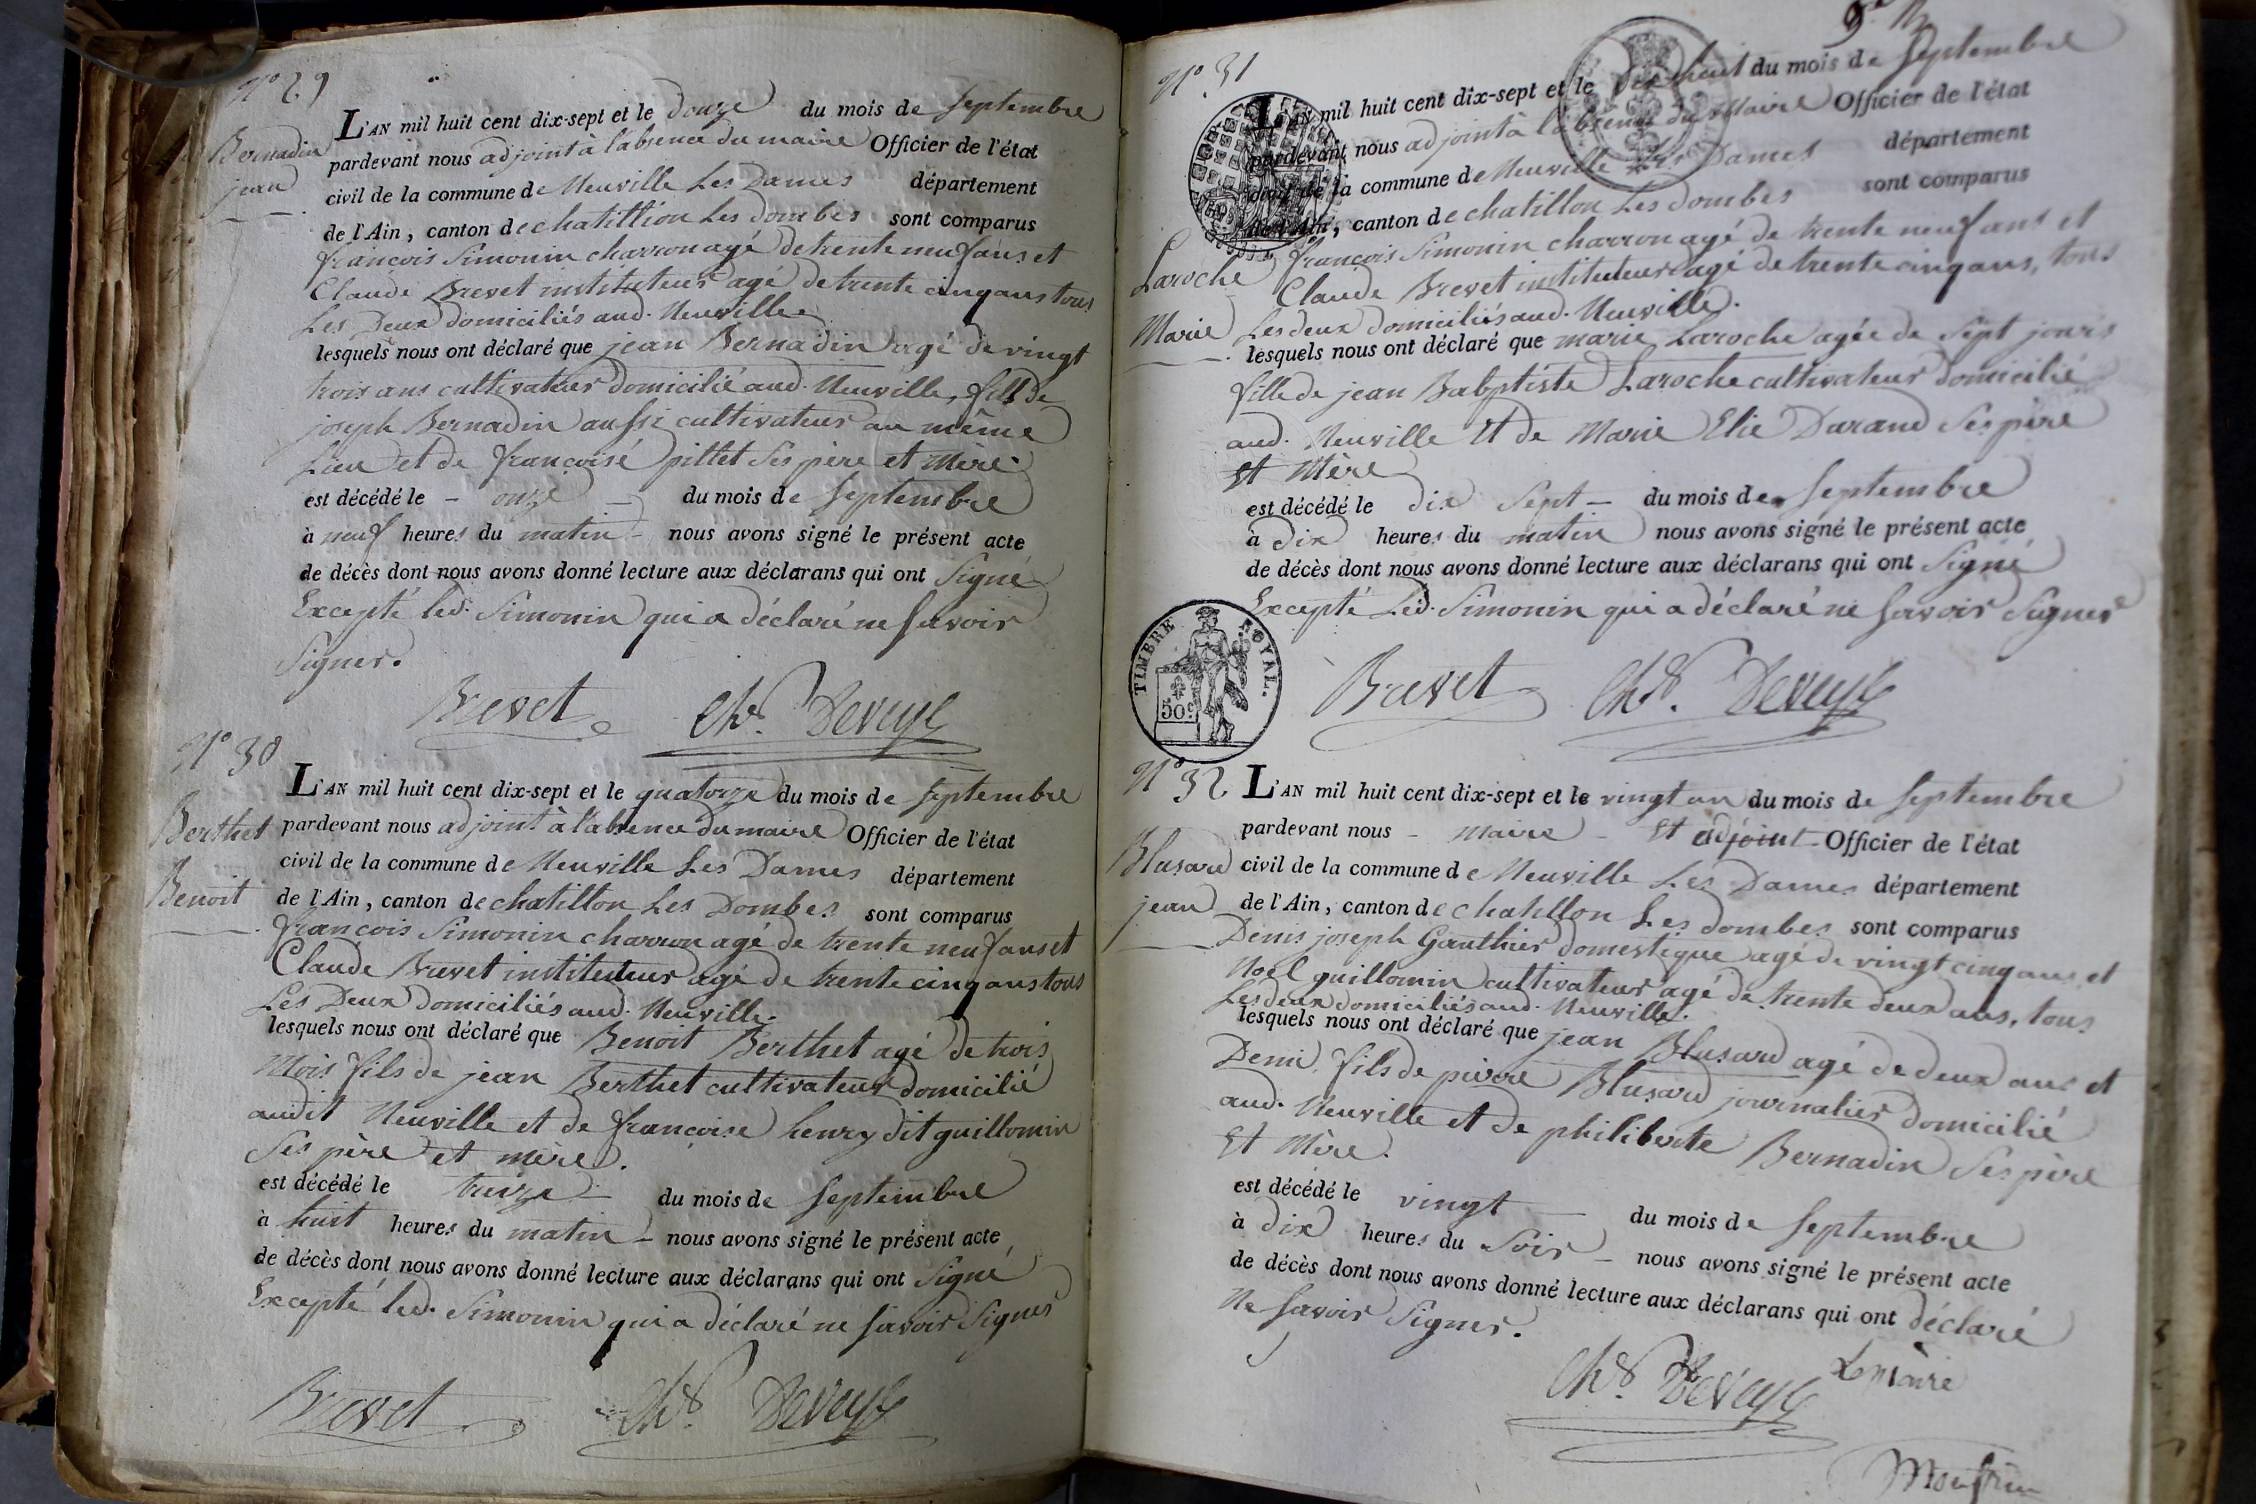 N.° 29
Bernadin
jean
L'AN mil huit cent dix-sept et le douze du mois de Septembre
pardevant nous adjoint à l'absence du maire Officier de l'état
civil de la commune de Neuville Les Dames département
de l'Ain, canton de chatillion Les dombes sont comparus
françois Simonin charron agé de trente neuf ans et
Claude Brevet instituteur agé de trente cinq ans tous
Les Deux domiciliés aud. Neuville.
lesquels nous ont déclaré que jean Bernadin agé de vingt
trois ans cultivateur domicilié aud. Neuville, fils de
joseph Bernadin aussi cultivateur au même
Lieu et de françoise pittet Ses père et Mère
est décédé le - onze - du mois de Septembre
à neuf heures du matin - nous avons signé le présent acte
de décès dont nous avons donné lecture aux déclarans qui ont Signé
Excepté led. Simonin qui a déclaré ne Savoir
Signer.
Brevet Chs. Deveyle
N.° 30
Berthet
Benoit
L'AN mil huit cent dix-sept et le quatorze du mois de Septembre
pardevant nous adjoint à l'absence du maire Officier de l'état
civil de la commune de Neuville Les Dames département
de l'Ain, canton de chatillon Les Dombes sont comparus
françois Simonin charron agé de trente neuf ans et
Claude Brevet instituteur agé de trente cinq ans tous
Les Deux domiciliés aud. Neuville.
lesquels nous ont déclaré que Benoit Berthet agé de trois
Mois fils de jean Berthet cultivateur domicilié
audit Neuville et de francoise henry dit guillomin
Ses père et mère.
est décédé le treize - du mois de Septembre
à huit heures du matin - nous avons signé le présent acte
de décès dont nous avons donné lecture aux déclarans qui ont Signé
Excepté led. Simonin qui a déclaré ne Savoir Signer
Brevet Chs. Deveyle
N.° 31
Laroche
Marie
L'AN mil huit cent dix-sept et le Dix huit du mois de Septembre
pardevant nous adjoint à l'absence du Maire Officier de l'état
civil de la commune de Neuville Les Dames département
de l'Ain, canton de chatillon Les dombes sont comparus
françois Simonin charron agé de trente neuf ans et
Claude Brevet instituteur agé de trente cinq ans, tous
Les deux domiciliés aud. Neuville.
lesquels nous ont déclaré que marie Laroche agée de Sept jours
fille de jean Babptiste Laroche cultivateur domicilié
aud. Neuville Et de Marie Elie Durand Ses père
Et Mère
est décédé le dix Sept - du mois de Septembre
à Dix heures du matin nous avons signé le présent acte
de décès dont nous avons donné lecture aux déclarans qui ont Signé
Excepté Led. Simonin qui a déclaré ne Savoir Signer
TIMBRE ROYAL.
50c
Brevet Chs. Deveyle
N.° 32
Blusard
jean
L'AN mil huit cent dix-sept et le vingt un du mois de Septembre
pardevant nous - Maire - Et adjoint - Officier de l'état
civil de la commune de Neuville Les Dames département
de l'Ain, canton de chatillon Les dombes sont comparus
Denis joseph Gauthier domestique agé de vingt cinq ans et
Noel guillomin cultivateur agé de trente deux ans, tous
Les deux domiciliés aud. Neuville.
lesquels nous ont déclaré que jean Blusard agé de deux ans et
Demi, fils de pierre Blusard journalier domicilié
aud. Neuville et de philiberte Bernadin Ses père
Et Mère.
est décédé le vingt - du mois de Septembre
à dix heures du Soir - nous avons signé le présent acte
de décès dont nous avons donné lecture aux déclarans qui ont déclaré
Ne Savoir Signer.
Chs. Deveyle Le maire